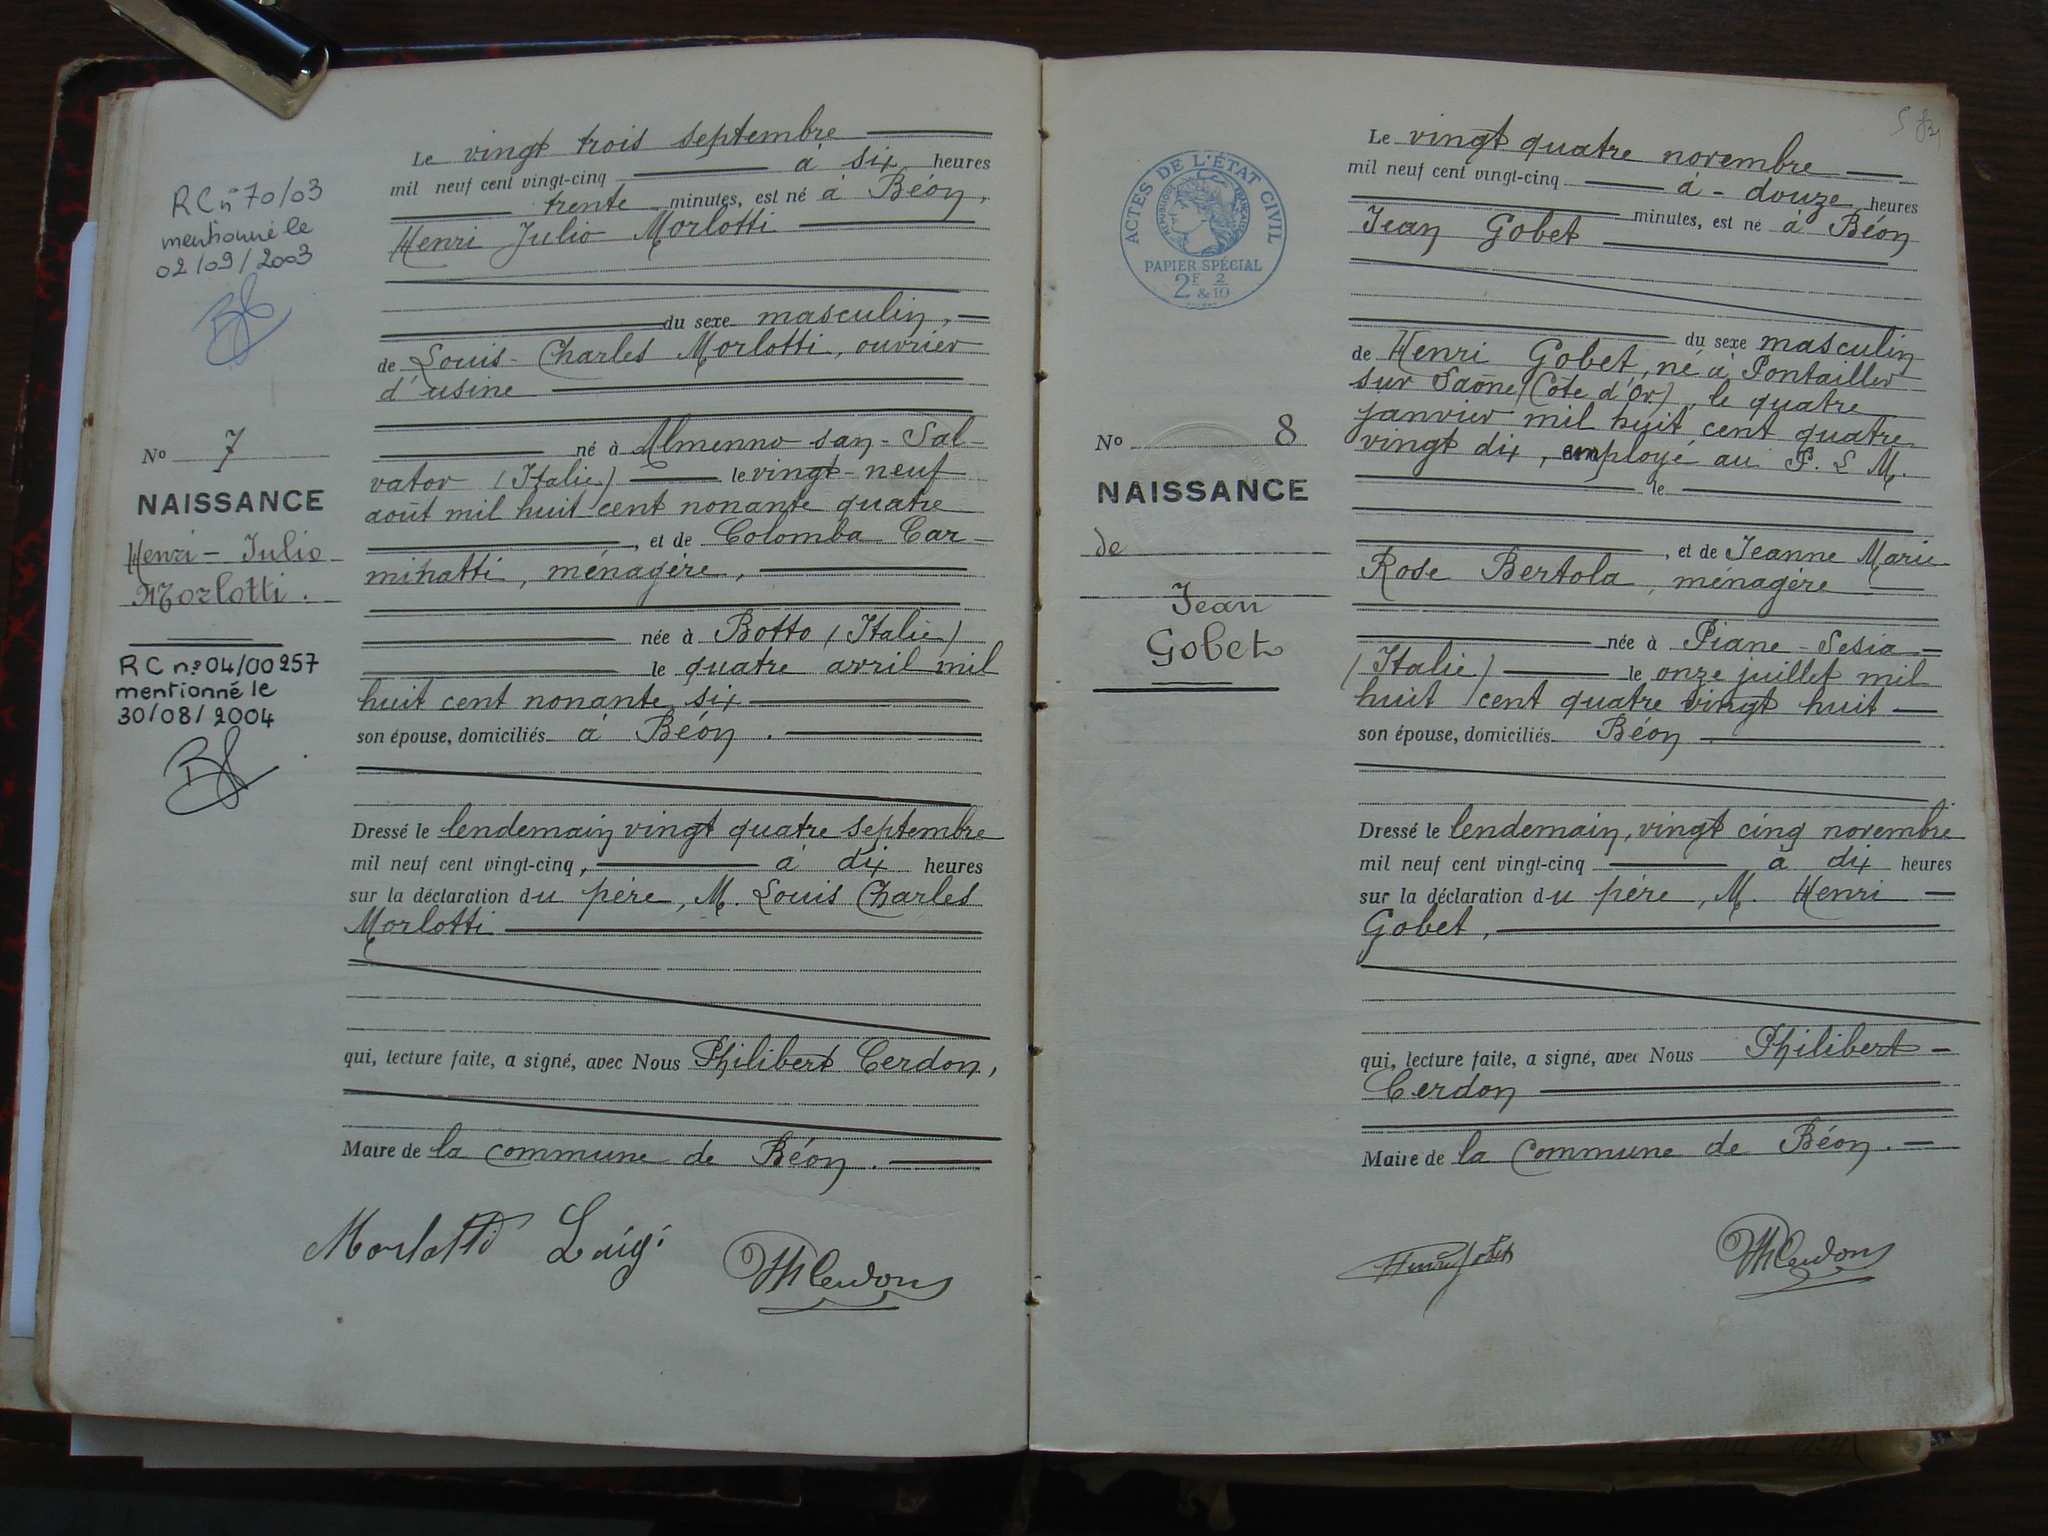 RC n° 70/03
mentionné le
02/09/2003
No 7
NAISSANCE
Henri - Julio
Morlotti.
RC n° 04/00257
mentionné le
30/08/2004
Le vingt trois septembre
mil neuf cent vingt-cinq à six heures
trente minutes, est né à Béon,
Henri Julio Morlotti
du sexe masculin,
de Louis-Charles Morlotti, ouvrier
d'usine
né à Almenno-san-Sal-
vator (Italie) le vingt-neuf
aout mil huit cent nonante quatre
, et de Colomba Car-
minatti, ménagère,
née à Botto (Italie)
le quatre avril mil
huit cent nonante six
son épouse, domiciliés à Béon.
Dressé le lendemain vingt quatre septembre
mil neuf cent vingt-cinq, à dix heures
sur la déclaration du père, M. Louis Charles
Morlotti
qui, lecture faite, a signé, avec Nous Philibert Cerdon,
Maire de la commune de Béon.
Morlotti Luigi
PhCerdon
ACTES DE L'ÉTAT CIVIL
RÉPUBLIQUE FRANÇAISE
PAPIER SPÉCIAL
2F & 2/10
No 8
NAISSANCE
de
Jean
Gobet
Le vingt quatre novembre
mil neuf cent vingt-cinq à - douze heures
minutes, est né à Béon
Jean Gobet
du sexe masculin
de Henri Gobet, né à Pontailler
sur Saône (Côte d'Or), le quatre
janvier mil huit cent quatre
vingt dix, employé au P. L M.
le
, et de Jeanne Marie
Rose Bertola, ménagère
née à Piane-Sesia
(Italie) le onze juillet mil
huit cent quatre vingt huit
son épouse, domiciliés Béon
Dressé le lendemain, vingt cinq novembre
mil neuf cent vingt-cinq à dix heures
sur la déclaration du père, M. Henri
Gobet,
qui, lecture faite, a signé, avec Nous Philibert
Cerdon
Maire de la commune de Béon.
Henri Gobet
PhCerdon